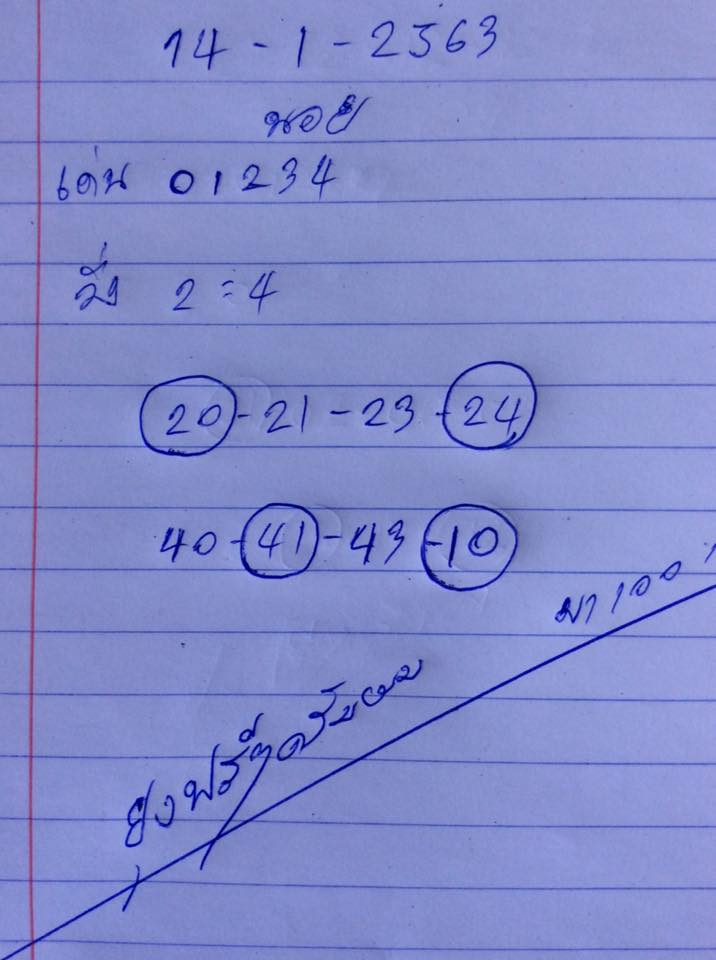 14 - 1 - 2563
นอย
เด่น 01234
วิ่ง 2 = 4
20 - 21 - 23 - 24
40 - 41 - 43 - 10
มา 100